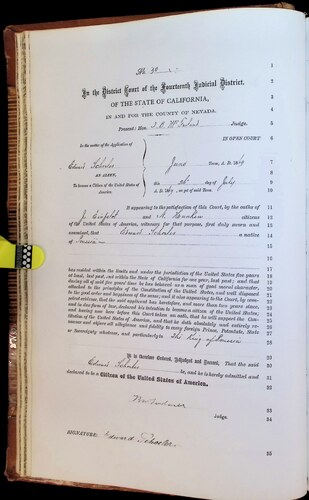 No 30
1
In the District Court of the Fourteenth Judicial District.
2
OF THE STATE OF CALIFORNIA,
3
IN AND FOR THE COUNTY OF NEVADA.
4
Present: Hon. Judge.
5
IN OPEN COURT
6
In the matter of the Application of
Edward Schofer June Term, A. D. 1869
7
AN ALIEN,
8
To become a Citizen of the United States of America. this day of July
9
A. D. 1869, as yet of said Term.
10
11
It appearing to the satisfaction of this Court, by the oaths of
12
J. and citizens
13
of the United States of America, witnesses for that purpose, first duly sworn and
14
examined, that Edward a native
15
of
16
17
18
has resided within the limits and under the jurisdiction of the United States five years
19
at least, last past, and within the State of California for one year, last past; and that
20
during all of said five years' time he has behaved as a man of good moral character,
21
attached to the principles of the Constitution of the United States, and well disposed
22
to the good order and happiness of the same; and it also appearing to the Court, by competent
23
evidence, that the said applicant has heretofore, and more than two years since,
24
and in due form of law, declared his intention to become a citizen of the United States;
25
and having now here before this Court taken an oath, that he will support the Constitution
26
of the United States of America, and that he doth absolutely and entirely renounce
27
and abjure all allegiance and fidelity to every foreign Prince, Potentate, State
or Sovereignty whatever, and particularly to The King of Prussia
28
29
It is therefore Ordered, Adjudged and Decreed, That the said
30
be, and he is hereby admitted and
31
declared to be a Citizen of the United States of America.
32
33
Judge.
34
SIGNATURE: Edward
35